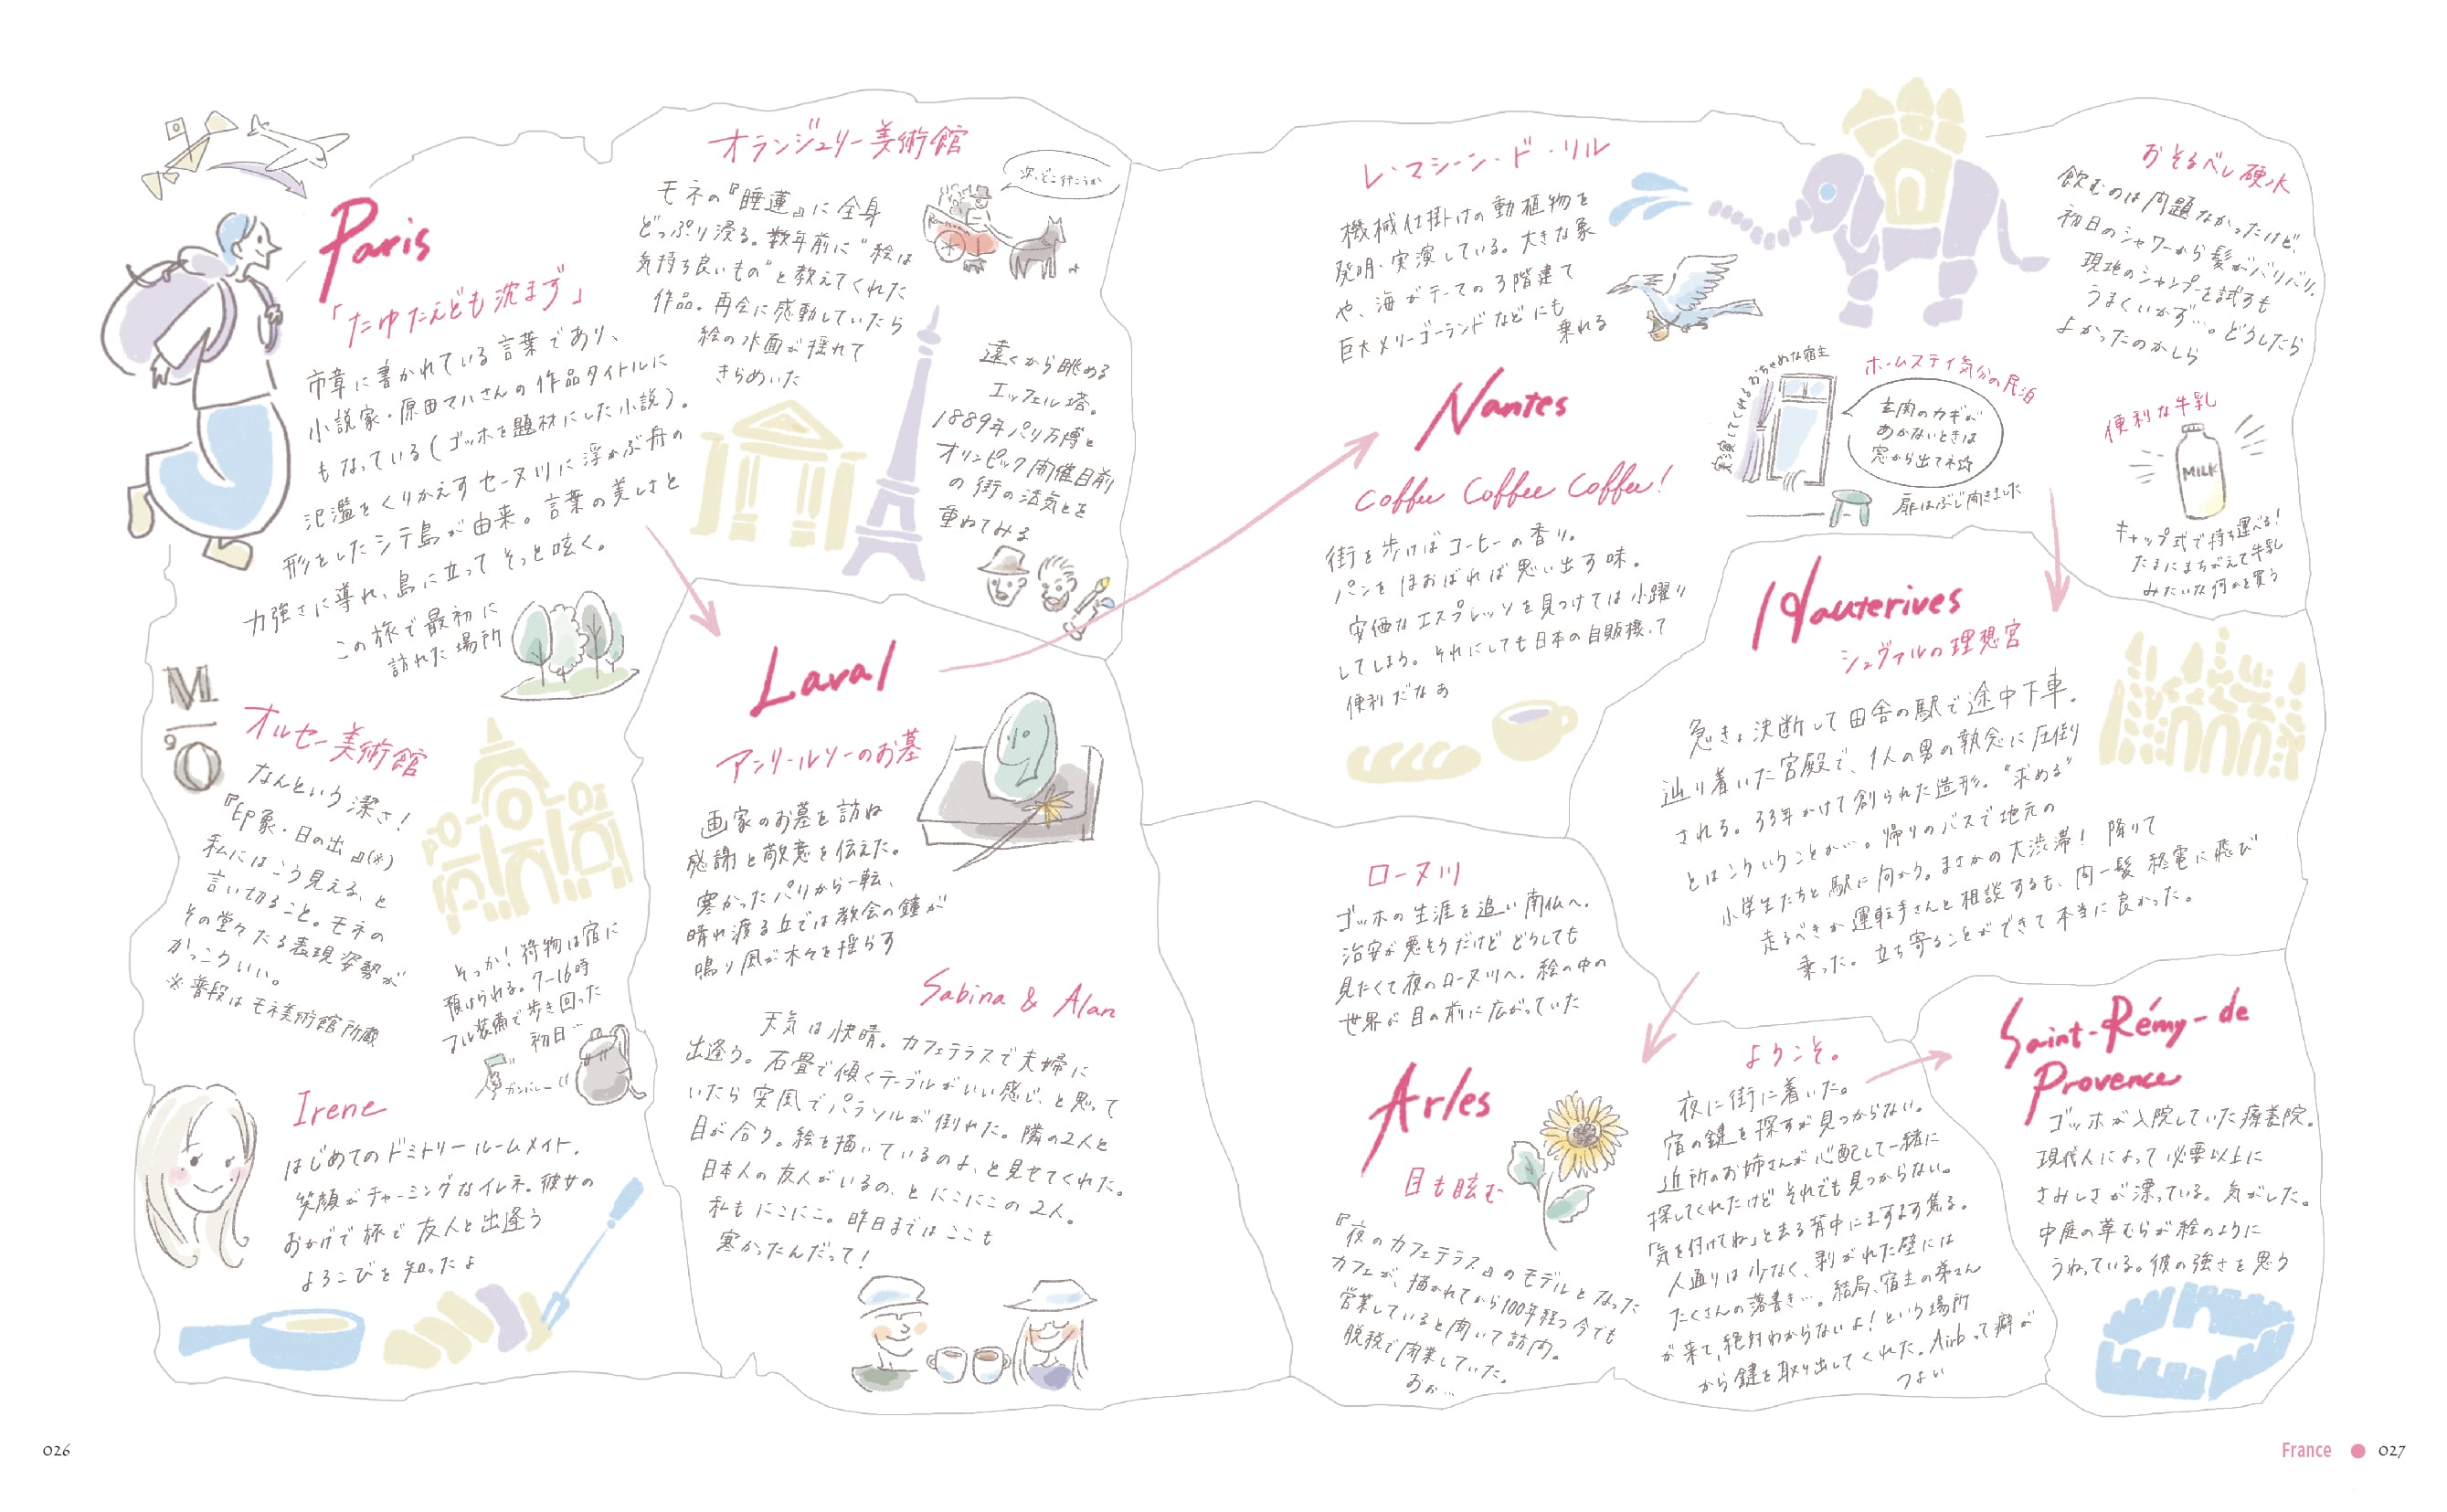 Paris
「たゆたえども沈まず」
市章に書かれている言葉であり、
小説家・原田マハさんの作品タイトルに
もなっている(ゴッホを題材にした小説)。
氾濫をくりかえすセーヌ川に浮かぶ舟の
形をしたシテ島が由来。言葉の美しさと
力強さに導れ、島に立ってそっと呟く。
この旅で最初に
訪れた場所
オランジュリー美術館
モネの『睡蓮』に全身
どっぷり浸る。数年前に“絵は
気持ち良いもの”と教えてくれた
作品。再会に感動していたら
絵の水面が揺れて
きらめいた
次、どこ行こうか
遠くから眺める
エッフェル塔。
1889年パリ万博と
オリンピック開催目前
の街の活気とを
重ねてみる
M
'O
オルセー美術館
なんという潔さ!
『印象・日の出』(※)
私にはこう見える、と
言い切ること。モネの
その堂々たる表現姿勢が
かっこういい。
※普段はモネ美術館所蔵
そっか!荷物は宿に
預けられる。7-16時
フル装備で歩き回った
初日…
ガンバレー
Irene
はじめてのドミトリールームメイト。
笑顔がチャーミングなイレネ。彼女の
おかげで旅で友人と出逢う
よろこびを知ったよ
Laval
アンリ・ルソーのお墓
画家のお墓を訪ね
感謝と敬意を伝えた。
寒かったパリから一転、
晴れ渡る丘では教会の鐘が
鳴り風が木々を揺らす
Sabina & Alan
天気は快晴。カフェテラスで夫婦に
出逢う。石畳で傾くテーブルがいい感じ、と思って
いたら突風でパラソルが倒れた。隣の2人と
目が合う。絵を描いているのよ、と見せてくれた。
日本人の友人がいるの、とにこにこの2人。
私もにこにこ。昨日まではここも
寒かったんだって!
レ・マシーン・ド・リル
機械仕掛けの動植物を
発明・実演している。大きな象
や、海がテーマの3階建て
巨大メリーゴーランドなどにも
乗れる
Nantes
coffee coffee coffee!
街を歩けばコーヒーの香り。
パンをほおばれば思い出す味。
安価なエスプレッソを見つけては小躍り
してしまう。それにしても日本の自販機って
便利だなぁ
ホームステイ気分の民泊
実演してくれるおちゃめな宿主
玄関のカギが
あかないときは
窓から出てネ
扉はぶじ開きました
おそるべし硬水
飲むのは問題なかったけど、
初日のシャワーから髪がバリバリ。
現地のシャンプーを試すも
うまくいかず…。どうしたら
よかったのかしら
便利な牛乳
MILK
キャップ式で持ち運べる!
たまにまちがえて牛乳
みたいな何かを買う
Hauterives
シュヴァルの理想宮
急きょ決断して田舎の駅で途中下車。
辿り着いた宮殿で、1人の男の執念に圧倒
される。33年かけて創られた造形。“求める”
とはこういうことか…。帰りのバスで地元の
小学生たちと駅に向かう。まさかの大渋滞!降りて
走るべきか運転手さんと相談するも、間一髪終電に飛び
乗った。立ち寄ることができて本当に良かった。
ローヌ川
ゴッホの生涯を追い南仏へ。
治安が悪そうだけどどうしても
見たくて夜のローヌ川へ。絵の中の
世界が目の前に広がっていた
Arles
目も眩む
『夜のカフェテラス』のモデルとなった
カフェが、描かれてから100年経つ今でも
営業していると聞いて訪問。
脱税で閉業していた。
おぉ…
ようこそ。
夜に街に着いた。
宿の鍵を探すが見つからない。
近所のお姉さんが心配して一緒に
探してくれたけどそれでも見つからない。
「気を付けてね」と去る背中にますます焦る。
人通りは少なく、剥がれた壁には
たくさんの落書き…。結局、宿主の弟さん
が来て、絶対わからないよ!という場所
から鍵を取り出してくれた。Airbって癖が
つよい
Saint-Rémy-de
Provence
ゴッホが入院していた療養院。
現代人によって必要以上に
さみしさが漂っている。気がした。
中庭の草むらが絵のように
うねっている。彼の強さを思う
026
France
027